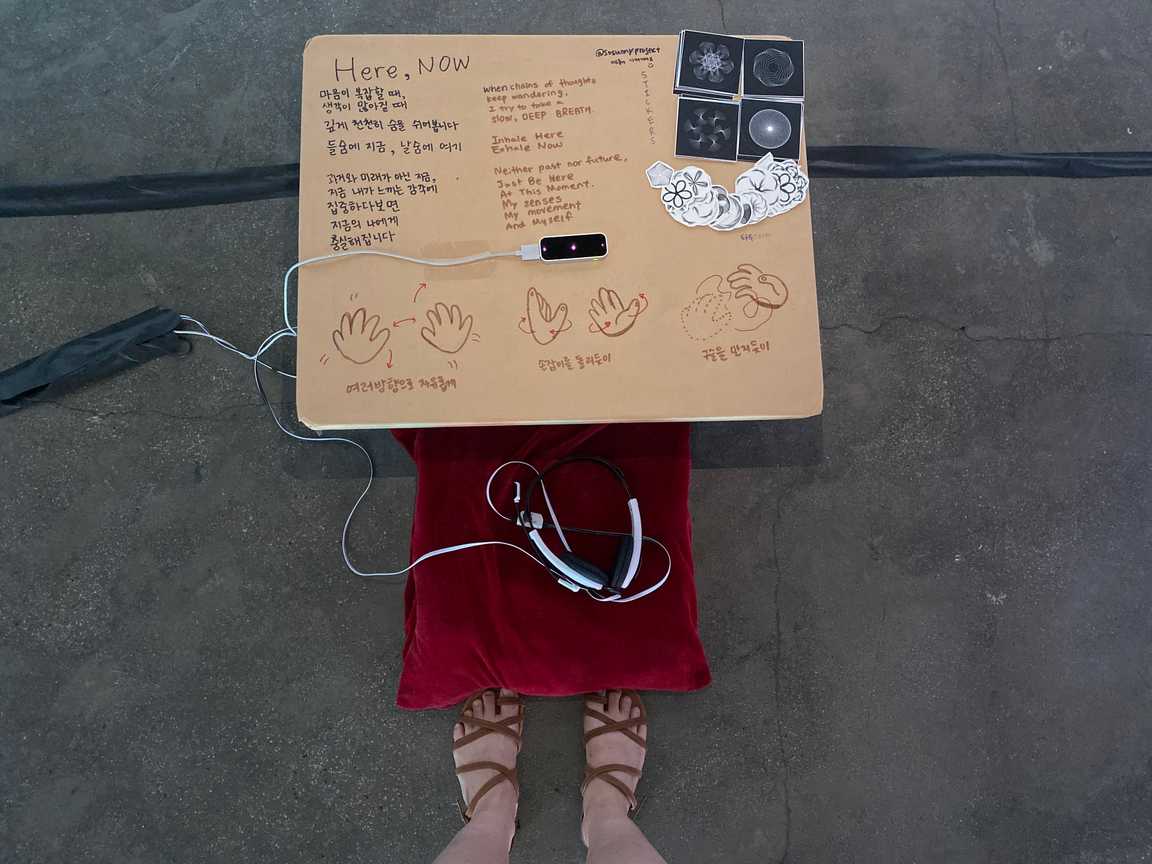 Here, NOW
마음이 복잡할 때,
생각이 많아질 때
깊게 천천히 숨을 쉬어봅니다
들숨에 지금, 날숨에 여기
과거와 미래가 아닌 지금,
지금 내가 느끼는 감각에
집중하다보면
지금의 나에게
충실해집니다
When chains of thoughts
keep wandering,
I try to take a
slow, DEEP BREATH.
Inhale Here
Exhale Now
Neither past nor future,
Just Be Here
At This Moment.
My senses
My movement
And Myself
STICKERS
여러방향으로 자유롭게
손잡이를 돌리듯이
구슬을 만지듯이